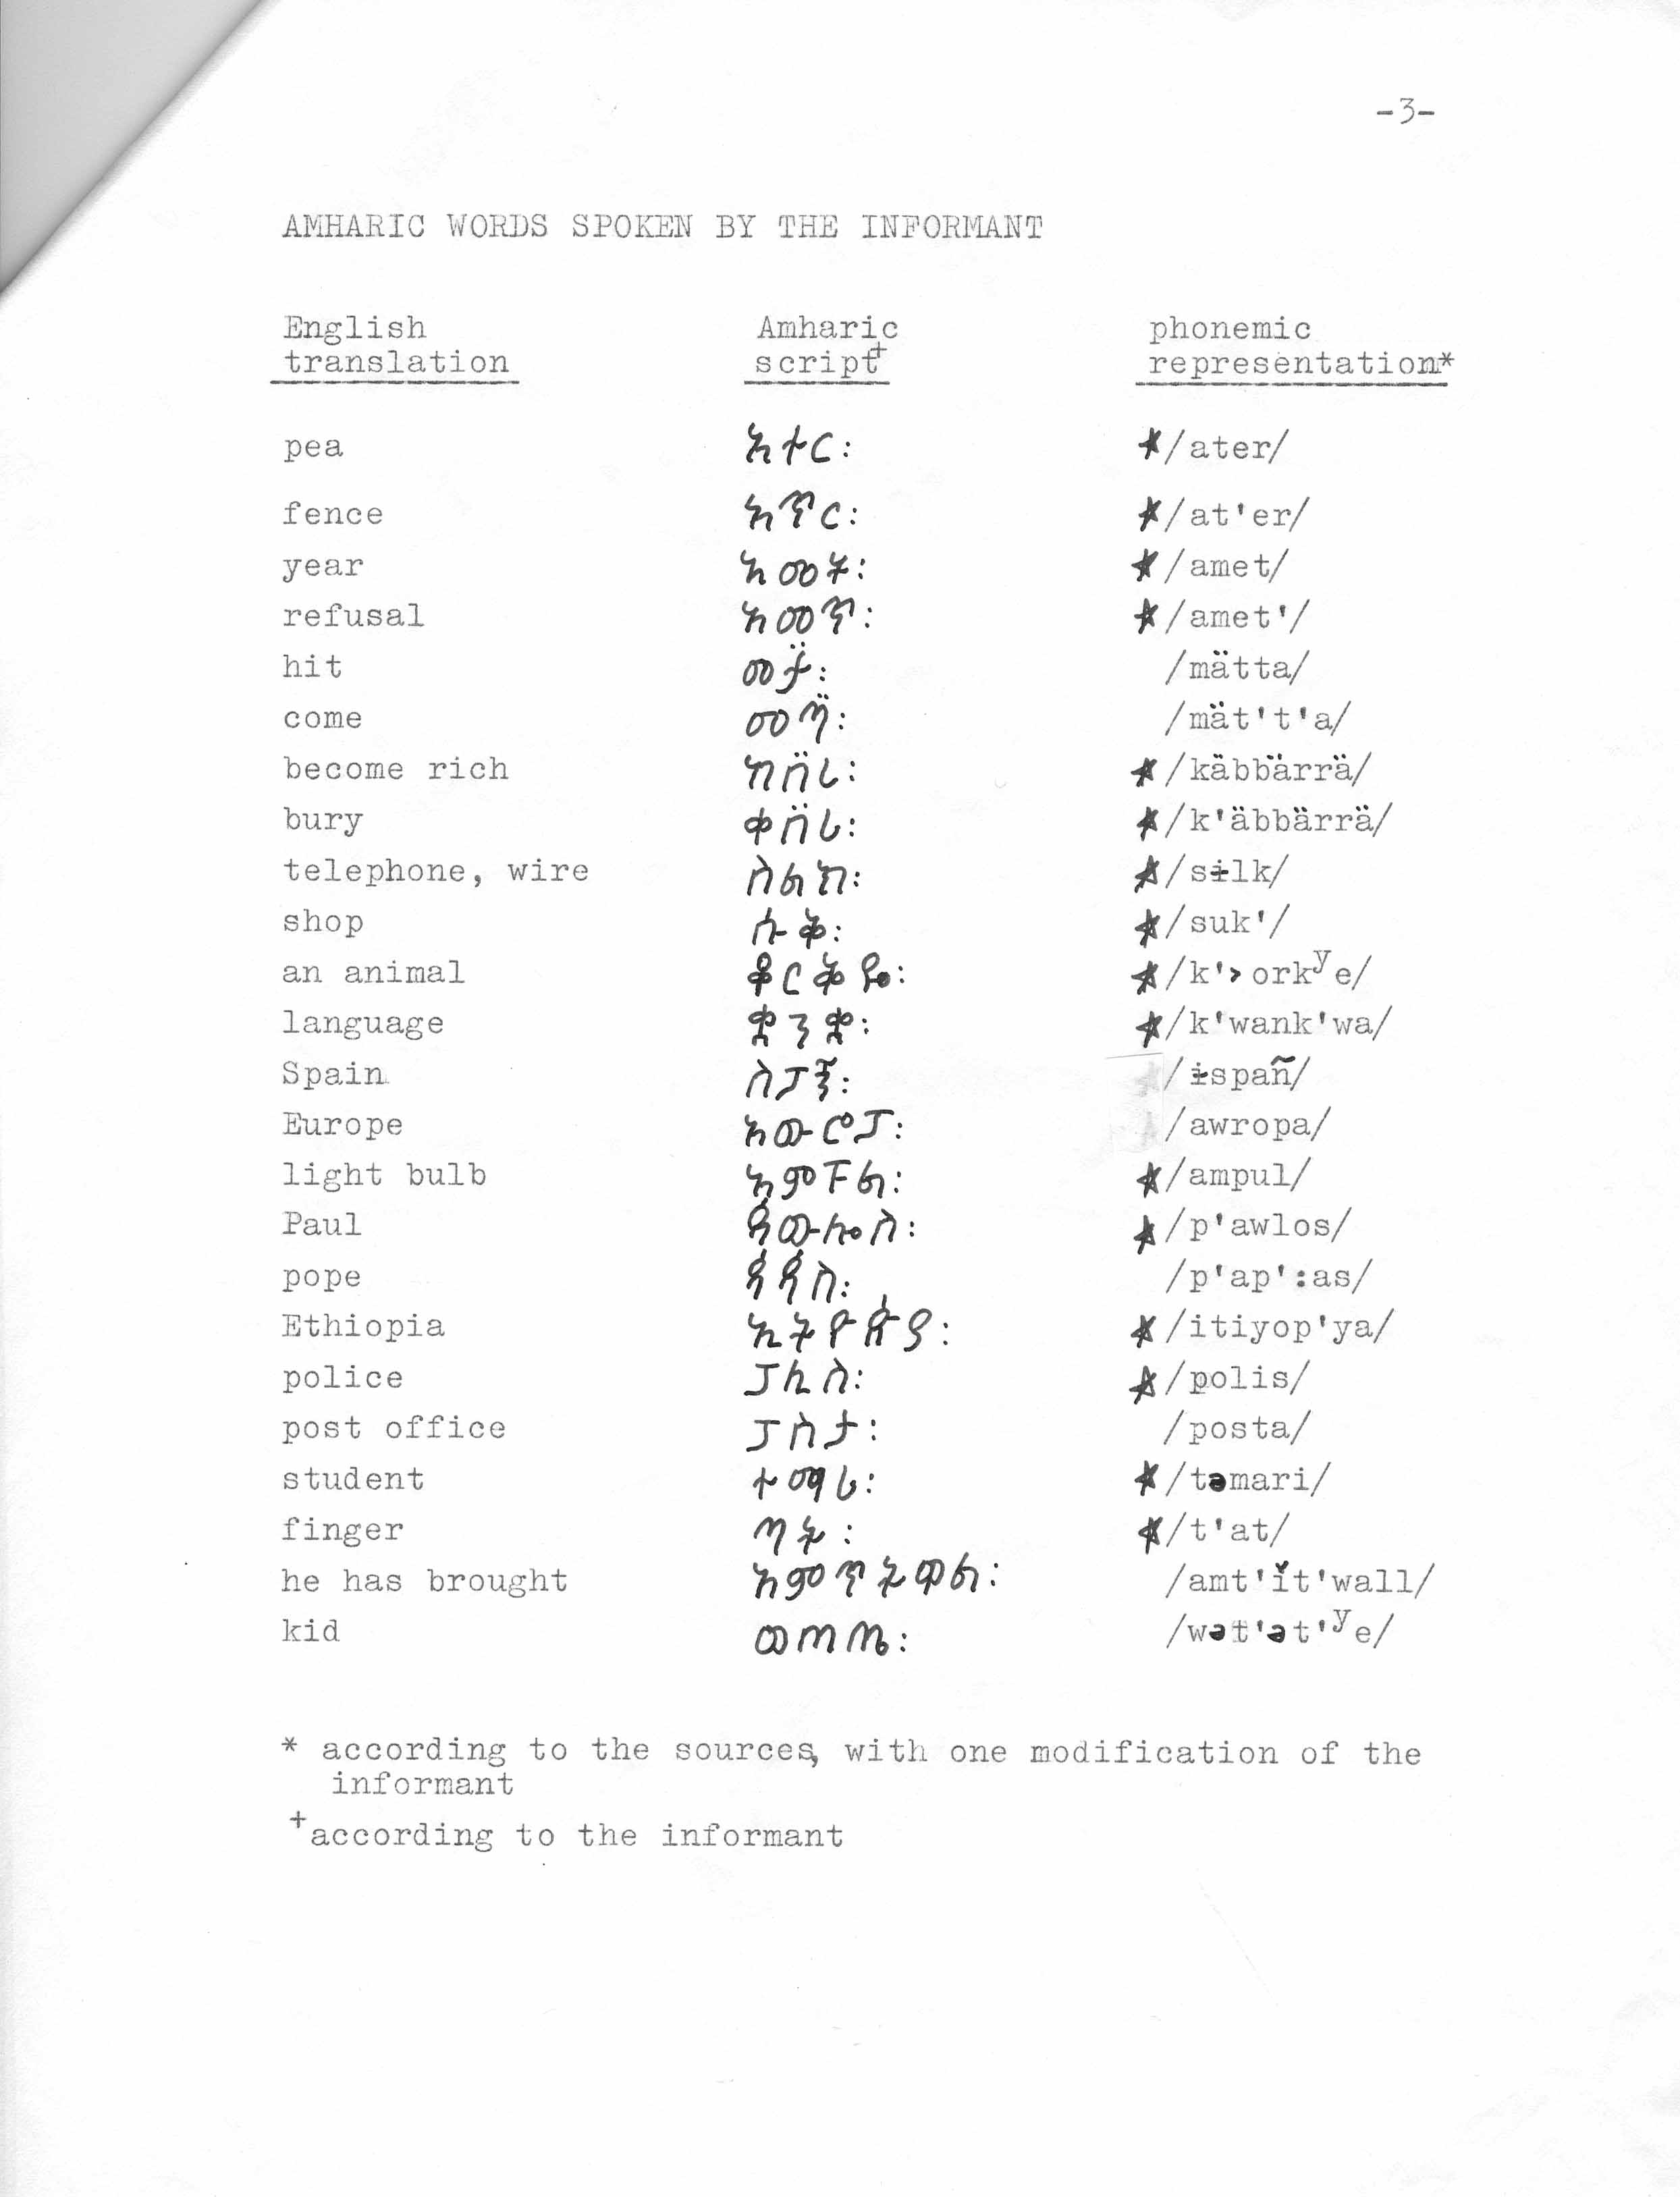 -3-
AMHARIC WORDS SPOKEN BY THE INFORMANT
English Amharic phonemic
translation script+ representation*
pea አተር፡ */ater/
fence አጥር፡ */at'er/
year አመት፡ */amet/
refusal አመጥ፡ */amet'/
hit መታ፡ /mätta/
come መጣ፡ /mät't'a/
become rich ከበረ፡ */käbbärrä/
bury ቀበረ፡ */k'äbbärrä/
telephone, wire ስልክ፡ */sɨlk/
shop ሱቅ፡ */suk'/
an animal ቆርቅዬ፡ */k'> orkʸe/
language ቋንቋ፡ */k'wank'wa/
Spain ስፓኝ፡ /ɨspañ/
Europe አውሮፓ፡ /awropa/
light bulb አምፑል፡ */ampul/
Paul ጳውሎስ፡ */p'awlos/
pope ጳጳስ፡ /p'ap':as/
Ethiopia ኢትዮጵያ፡ */itiyop'ya/
police ፖሊስ፡ */polis/
post office ፖስታ፡ /posta/
student ተማሪ፡ */təmari/
finger ጣት፡ */t'at/
he has brought አምጥትዋል፡ /amt'ǐt'wall/
kid ወጠጤ፡ /wət'ət'ʸe/
* according to the sources, with one modification of the
informant
+according to the informant